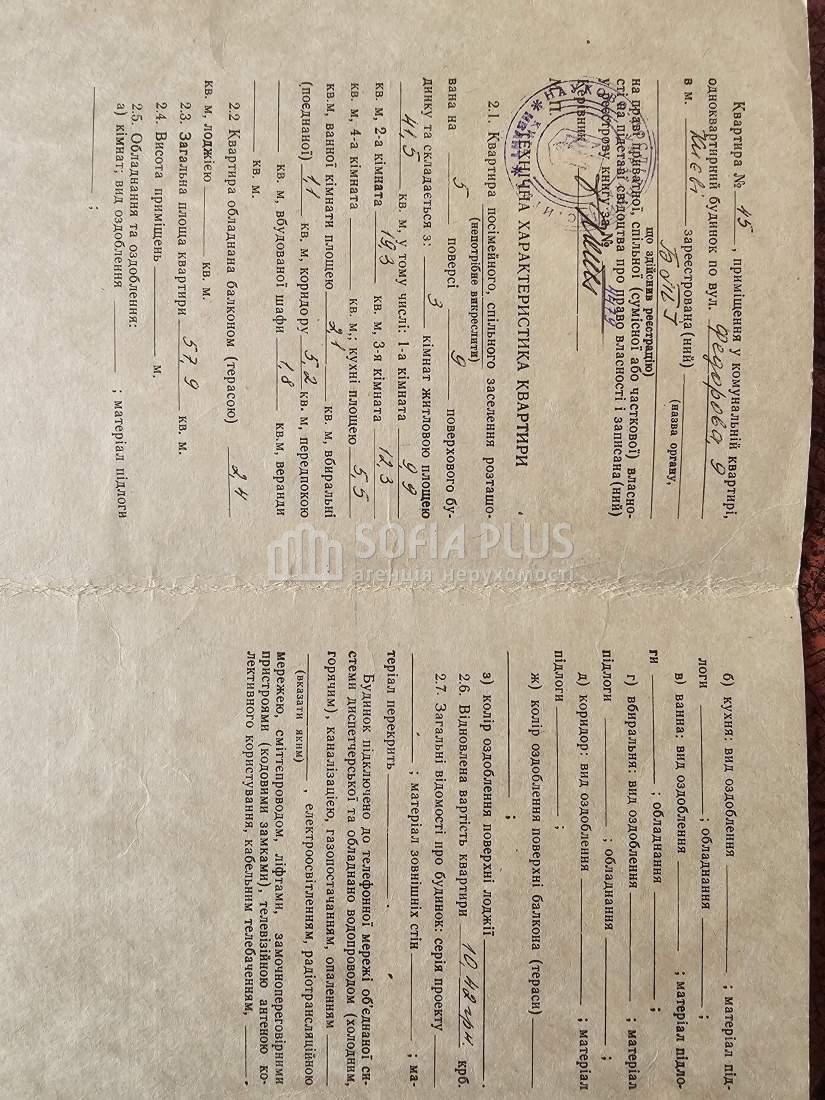 Квартира № 45, приміщення у комунальній квартирі,
одноквартирний будинок по вул. Федорова, 9
в м. Києві зареєстрована(ний)
БТІ (назва органу,
що здійснив реєстрацію)
на праві приватної, спільної (сумісної або часткової) власно-
сті на підставі свідоцтва про право власності і записана(ний)
у реєстрову книгу за № 4479
Керівник
М.П.
ТЕХНІЧНА ХАРАКТЕРИСТИКА КВАРТИРИ
2.1. Квартира посімейного, спільного заселення розташо-
(непотрібне викреслити)
вана на 5 поверсі 9 поверхового бу-
динку та складається з: 3 кімнат житловою площею
41,5 кв. м, у тому числі: 1-а кімната 9,9
кв. м, 2-а кімната 19,3 кв. м, 3-я кімната 12,3
кв. м, 4-а кімната кв. м.; кухні площею 5,5
кв.м, ванної кімнати площею 2,1 кв. м, вбиральні
(поєднаної) 1,1 кв. м, коридору 5,2 кв. м, передпокою
кв. м, вбудованої шафи 1,8 кв.м, веранди
кв. м.
2.2 Квартира обладнана балконом (терасою) 2,4
кв. м, лоджією кв. м.
2.3. Загальна площа квартири 57,9 кв. м.
2.4. Висота приміщень м.
2.5. Обладнання та оздоблення:
а) кімнат; вид оздоблення ; матеріал підлоги
;
SOFIA PLUS
агенція нерухомості
б) кухня: вид оздоблення ; матеріал під-
логи ; обладнання ;
в) ванна: вид оздоблення ; матеріал підло-
ги ; обладнання ;
г) вбиральня: вид оздоблення ; матеріал
підлоги ; обладнання ;
д) коридор: вид оздоблення ; матеріал
підлоги ;
ж) колір оздоблення поверхні балкона (тераси)
;
з) колір оздоблення поверхні лоджії .
2.6. Відновлена вартість квартири 10,42 грн. крб.
2.7. Загальні відомості про будинок: серія проекту
; матеріал зовнішніх стін ; ма-
теріал перекрить .
Будинок підключено до телефонної мережі об'єднаної си-
стеми диспетчерської та обладнано водопроводом (холодним,
горячим), каналізацією, газопостачанням, опаленням
(вказати яким) , електроосвітленням, радіотрансляційною
мережею, сміттєпроводом, ліфтами, замочнопереговірними
пристроями (кодовими замками), телевізійною антеною ко-
лективного користування, кабельним телебаченням, .